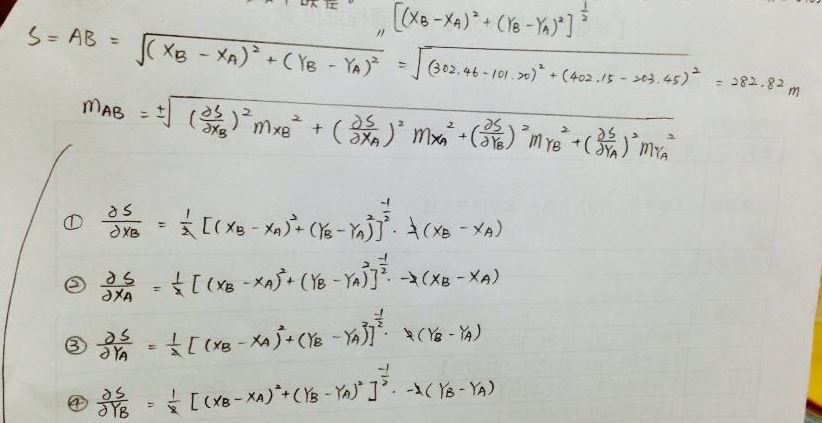 〃 [(XB - XA)² + (YB - YA)²]^½
S = AB = √((XB - XA)² + (YB - YA)²) = √((302.46 - 101.20)² + (402.15 - 203.45)²) = 282.82 m
mAB = ±√((∂S/∂XB)² mXB² + (∂S/∂XA)² mXA² + (∂S/∂YB)² mYB² + (∂S/∂YA)² mYA²)
① ∂S/∂XB = 1/2 [(XB - XA)² + (YB - YA)²]^-1/2 · 2(XB - XA)
② ∂S/∂XA = 1/2 [(XB - XA)² + (YB - YA)²]^-1/2 · -2(XB - XA)
③ ∂S/∂YA = 1/2 [(XB - XA)² + (YB - YA)²]^-1/2 · 2(YB - YA)
④ ∂S/∂YB = 1/2 [(XB - XA)² + (YB - YA)²]^-1/2 · -2(YB - YA)